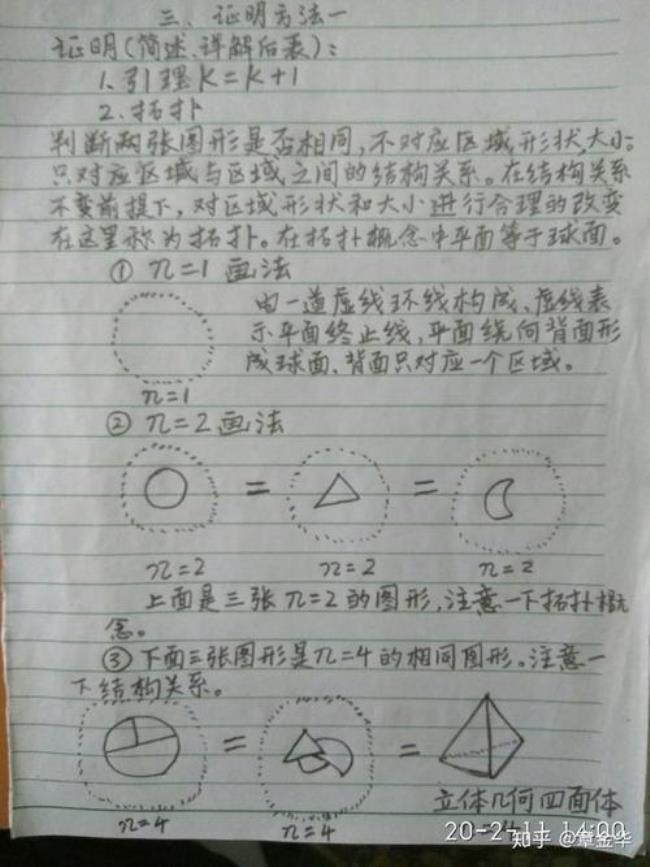 三、证明方法一
证明(简述、详解后表):
1. 引理K=K+1
2. 拓扑
判断两张图形是否相同,不对应区域形状,大小。
只对应区域与区域之间的结构关系。在结构关系
不变前提下,对区域形状和大小进行合理的改变
在这里称为拓扑。在拓扑概念中平面等于球面。
① n=1 画法
由一道虚线环线构成、虚线表
示平面终止线,平面绕向背面形
成球面、背面只对应一个区域。
n=1
② n=2 画法
= =
n=2 n=2 n=2
上面是三张n=2的图形,注意一下拓扑概
念。
③ 下面三张图形是n=4的相同图形。注意一
下结构关系。
= =
立体几何四面体
n=4 n=4
知乎 @章金华
20-2-11 14:00